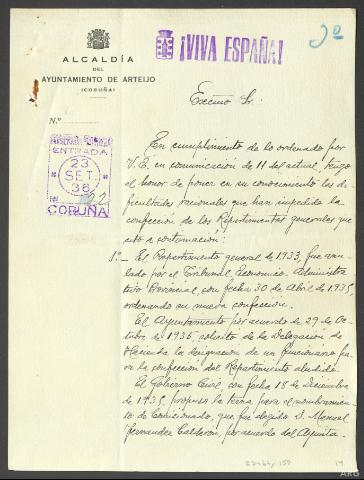 ALCALDÍA
DEL
AYUNTAMIENTO DE ARTEIJO
(CORUÑA)
¡VIVA ESPAÑA!
Nº
ENTRADA
23
SET.
36
CORUÑA
Excmo Sr.
En cumplimiento de lo ordenado por
V.E. en comunicación de 11 del actual, tengo
el honor de poner en su conocimiento las di-
ficultades racionales que han impedido la
confección de los Repartimentos generales que
cito a continuación:
1º- El Repartimiento general de 1933, fue anu-
lado por el Tribunal Economico-Administra-
tivo Provincial, con fecha 30 de Abril de 1935,
ordenando su nueva confección.
El Ayuntamiento por acuerdo de 29 de Oc-
tubre de 1935, solicitó de la Delegación de
Hacienda la designación de un funcionario pa-
ra la confección del Repartimiento aludido.
El Gobierno Civil con fecha 18 de Diciembre
de 1935, propuso la terna para el nombramien-
to de Comisionado, que fue elegido D. Manuel
Fernandez Calderon, por acuerdo del Ayunta-
ARG